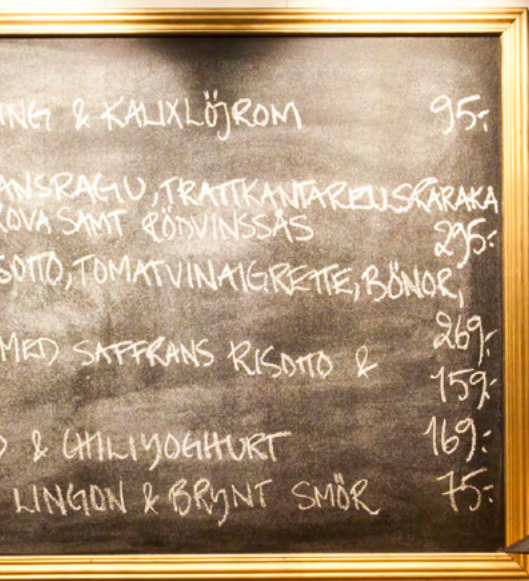 ING & KALIXLÖJROM 95:-
ANSRAGU, TRATTKANTARELLSKARAKA
KOVA SAMT RÖDVINSSÅS 295:-
SOTTO, TOMATVINAIGRETTE, BÖNOR,
269:-
MED SAFFRANS RISOTTO &
159:-
& CHILIYOGHURT 169:-
LINGON & BRYNT SMÖR 75:-